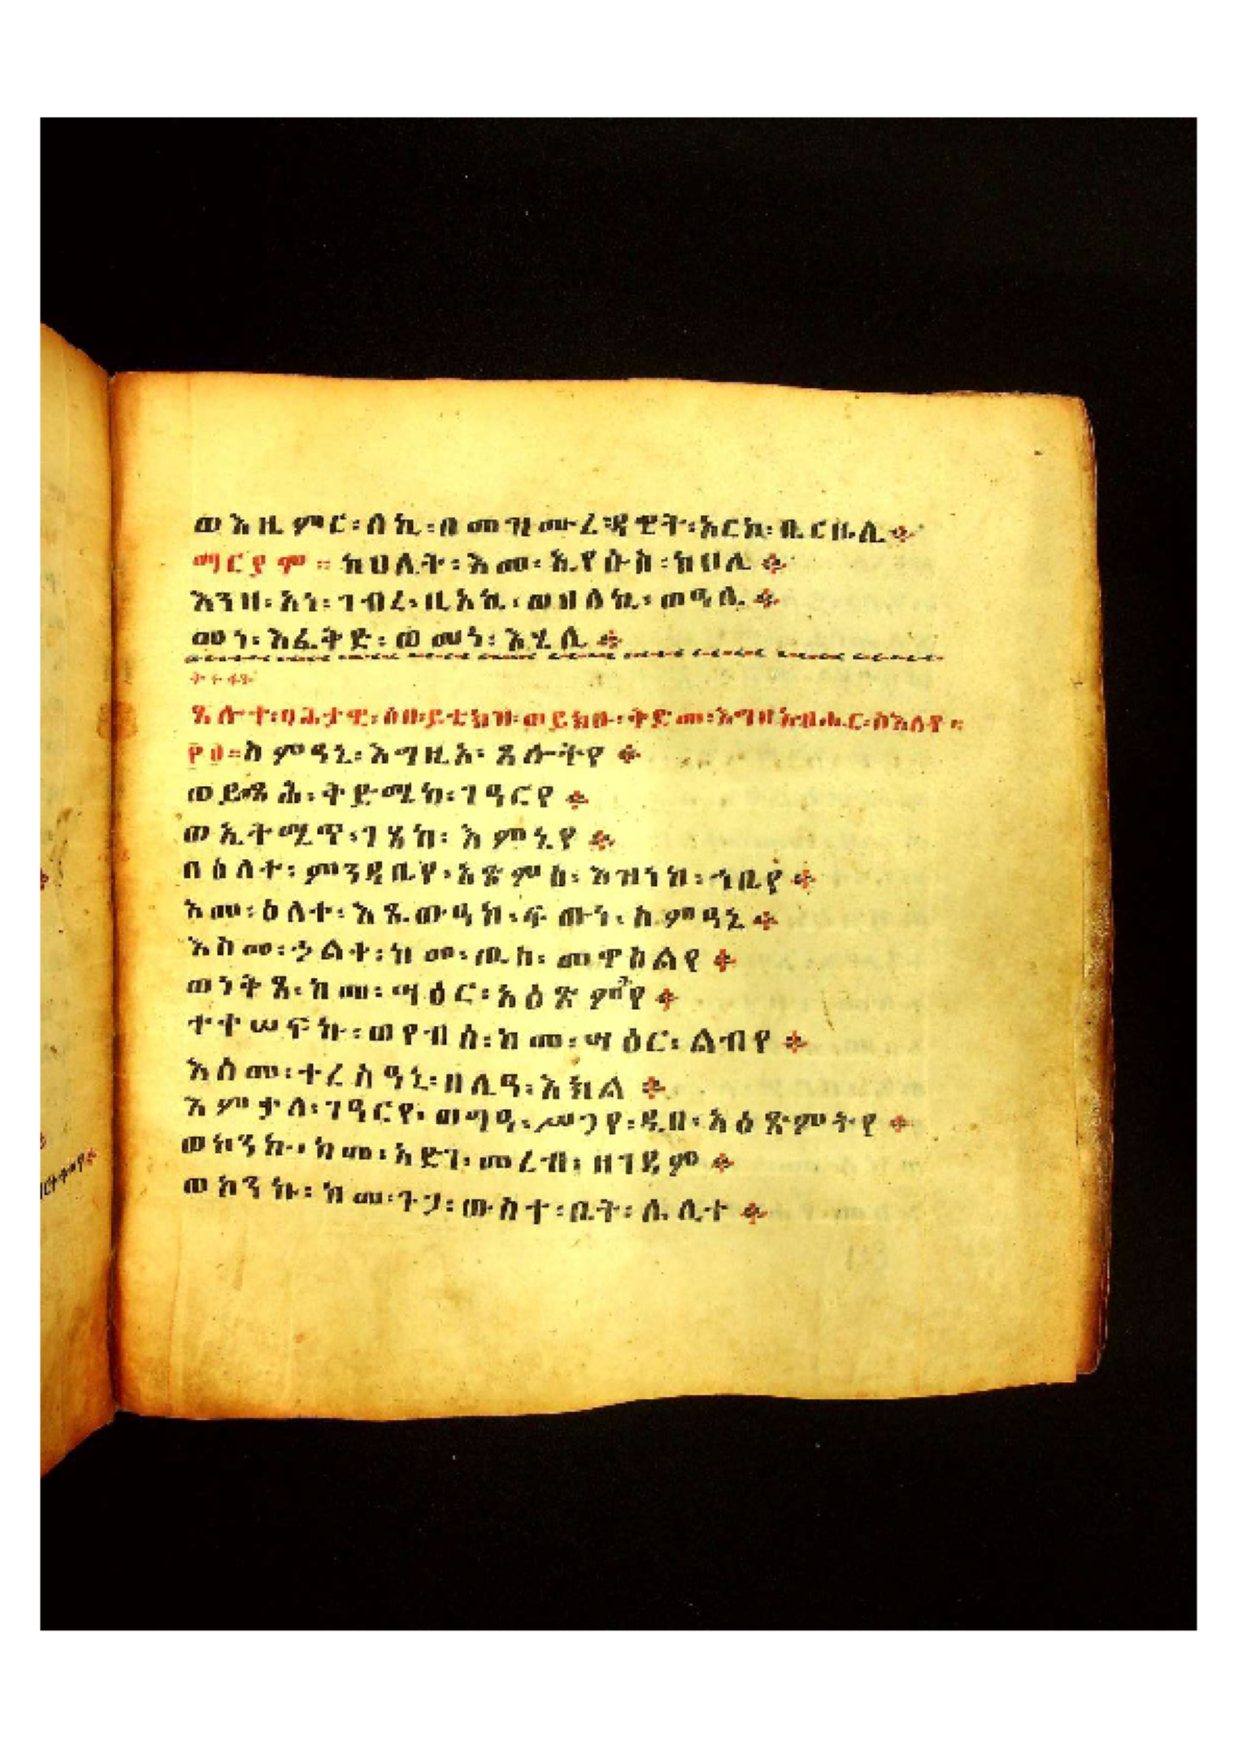 ወእዚምር፡ለኪ፡በመዝሙረ፡ዳዊት፡አርኪ፡ቢርዜሊ፨
ማርያም፡፡ ክህለት፡እሙ፡ኢየሱስ፡ከሀሊ፨
እንዘ፡አነ፡ገብረ፡ዚአኪ፡ወዘለኪ፡ወዓሊ፨
መነ፡እፈቅድ፡ወመነ፡እሄሊ፨
ጸሎተ፡ባሕታዊ፡ሶበ፡ይቴክዝ፡ወይክዑ፡ቅድመ፡እግዚአብሔር፡ስእለየ፡፡
፻፩፡፡ስምዓኒ፡እግዚአ፡ጸሎትየ፨
ወይብጻሕ፡ቅድሜከ፡ገዓርየ፨
ወኢትሚጥ፡ገጸከ፡እምኔየ፨
በዕለተ፡ምንዳቤየ፡አጽምዕ፡እዝነከ፡ኀቤየ፨
እመ፡ዕለተ፡እጼውዓከ፡ፍጡነ፡ስምዓኒ፨
እስመ፡ኃልቀ፡ከመ፡ጢስ፡መዋዕልየ፨
ወነቅጸ፡ከመ፡ሣዕር፡አዕጽምየ፨
ተቀሠፍኩ፡ወየብሰ፡ከመ፡ሣዕር፡ልብየ፨
እስመ፡ተረስዓኒ፡በሊዓ፡እክል፨
እምቃለ፡ገዓርየ፡ወግዓ፡ሥጋየ፡ዲበ፡አዕጽምትየ፨
ወኮንኩ፡ከመ፡አድገ፡መረብ፡ዘገዳም፨
ወኮንኩ፡ከመ፡ጉጓ፡ውስተ፡ቤት፡ሌሊተ፨